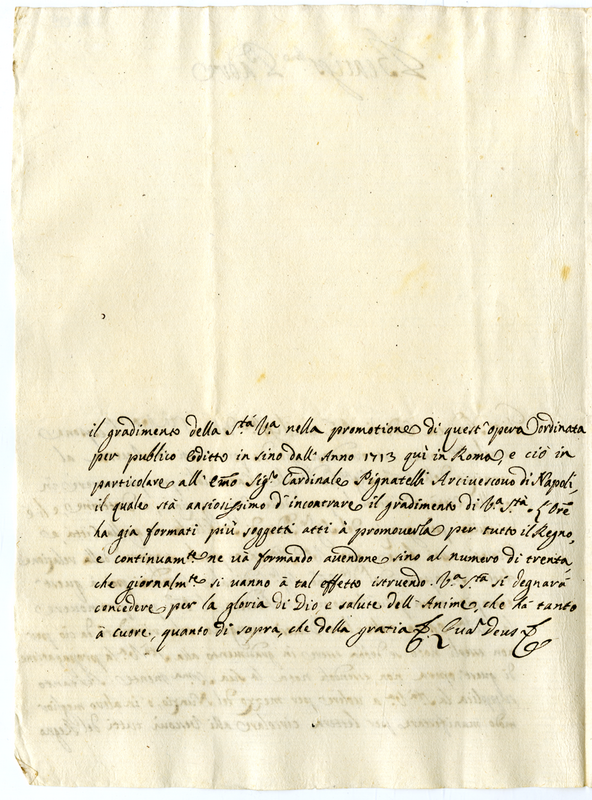 il gradimento della S.tà V.a nella promotione di quest'opera ordinata
per publico Editto in sino dall'Anno 1713 quì in Roma, e ciò in
particolare all'Emo Sig.r Cardinale Pignatelli Arcivescovo di Napoli,
il quale stà ansiosissimo d'incontrare il gradimento di V.a S.tà. L'Ore
ha gia formati più soggetti atti à promoverla per tutto il Regno,
e continuam.te ne và formando avendone sino al numero di trenta,
che giornalm.te si vanno à tal effetto istruendo. V.a S.tà si degnarà
concedere per la gloria di Dio, e salute dell'Anime, che hà tanto
à cuore, quanto di sopra, che della gratia Quas Deus